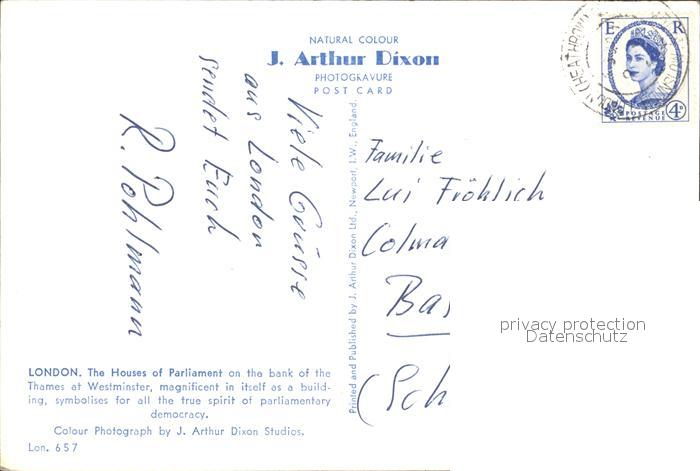 NATURAL COLOUR
J. Arthur Dixon
PHOTOGRAVURE
POST CARD
Viele Grüsse
aus London
sendet Euch
R. Pohlmann
Printed and Published by J. Arthur Dixon Ltd., Newport, I.W., England.
E R
POSTAGE
REVENUE
4D
Familie
Lui Fröhlich
Colma
Bas
(Sch
privacy protection
Datenschutz
LONDON. The Houses of Parliament on the bank of the
Thames at Westminster, magnificent in itself as a build-
ing, symbolises for all the true spirit of parliamentary
democracy.
Colour Photograph by J. Arthur Dixon Studios.
Lon. 657